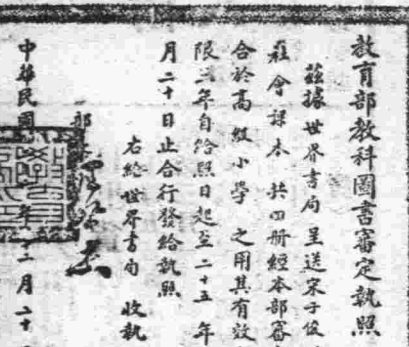 教育部教科圖書審定執照
茲據世界書局呈送宋子俊
社會課本 共四冊經本部審
合於高級小學 之用其有效
限三年自給照日起至二十五 年
月二十日止合行發給執照
右給世界書局 收執
部
中華民國 年 月二十